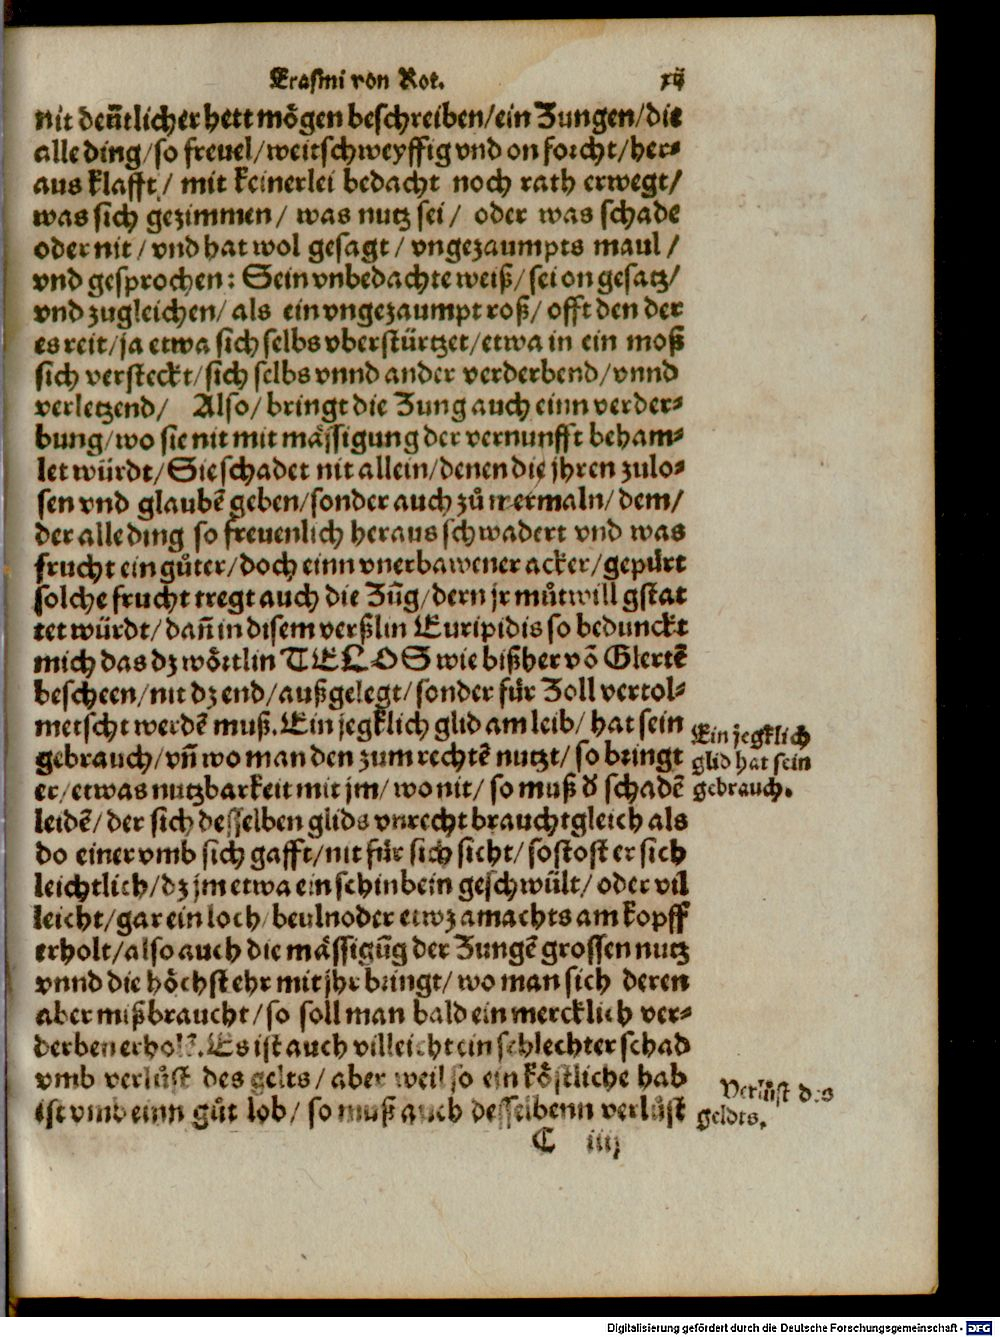 Erasmi von Rot. xij
nit deñtlicher hett mögen beschreiben/ein Zungen/die
alle ding/so freuel/weitschweyffig vnd on forcht/her-
aus klafft/ mit keinerlei bedacht noch rath erwegt/
was sich gezimmen/ was nutz sei/ oder was schade
oder nit/ vnd hat wol gesagt/ vngezaumpts maul/
vnd gesprochen: Sein vnbedachte weiß/ sei on gesatz/
vnd zugleichen/ als ein vngezaumpt roß/ offt den der
es reit/ja etwa sich selbs vberstürtzet/etwa in ein moß
sich versteckt/sich selbs vnnd ander verderbend/vnnd
verletzend/ Also/ bringt die Zung auch einn verder-
bung/wo sie nit mit mässigung der vernunfft beham-
let würdt/Sie schadet nit allein/denen die jhren zulo-
sen vnd glaubē geben/sonder auch zů mermaln/ dem/
der alle ding so freuenlich heraus schwadert vnd was
frucht ein gůter/doch einn vnerbawener acker/gepürt
solche frucht tregt auch die Zūg/dern jr můtwill gstat
tet würdt/ dañ in disem verßlin Euripidis so bedunckt
mich das dz wörtlin TELOS wie bißher võ Glertē
bescheen/nit dz end/außgelegt/sonder für Zoll vertol-
metscht werdē muß. Ein jegklich glid am leib/ hat sein
gebrauch/vñ wo man den zum rechtē nutzt/ so bringt
er/etwas nutzbarkeit mit jm/ wo nit/ so muß d schadē
leidē/ der sich desselben glids vnrecht braucht gleich als
do einer vmb sich gafft/nit für sich sicht/ so stost er sich
leichtlich/dz jm etwa ein schinbein geschwült/ oder vil
leicht/gar ein loch/beuln oder etwz amachts am kopff
erholt/also auch die mässigūg der Zungē grossen nutz
vnnd die höchst ehr mit jhr bringt/ wo man sich deren
aber mißbraucht/so soll man bald ein mercklich ver-
derben erholē. Es ist auch villeicht ein schlechter schad
vmb verlůst des gelts/ aber weil so ein köstliche hab
ist vmb einn gůt lob/ so muß auch desselbenn verlůst
C iiij
Ein jegklich
glid hat sein
gebrauch.
Verlůst des
geldts.
Digitalisierung gefördert durch die Deutsche Forschungsgemeinschaft - DFG